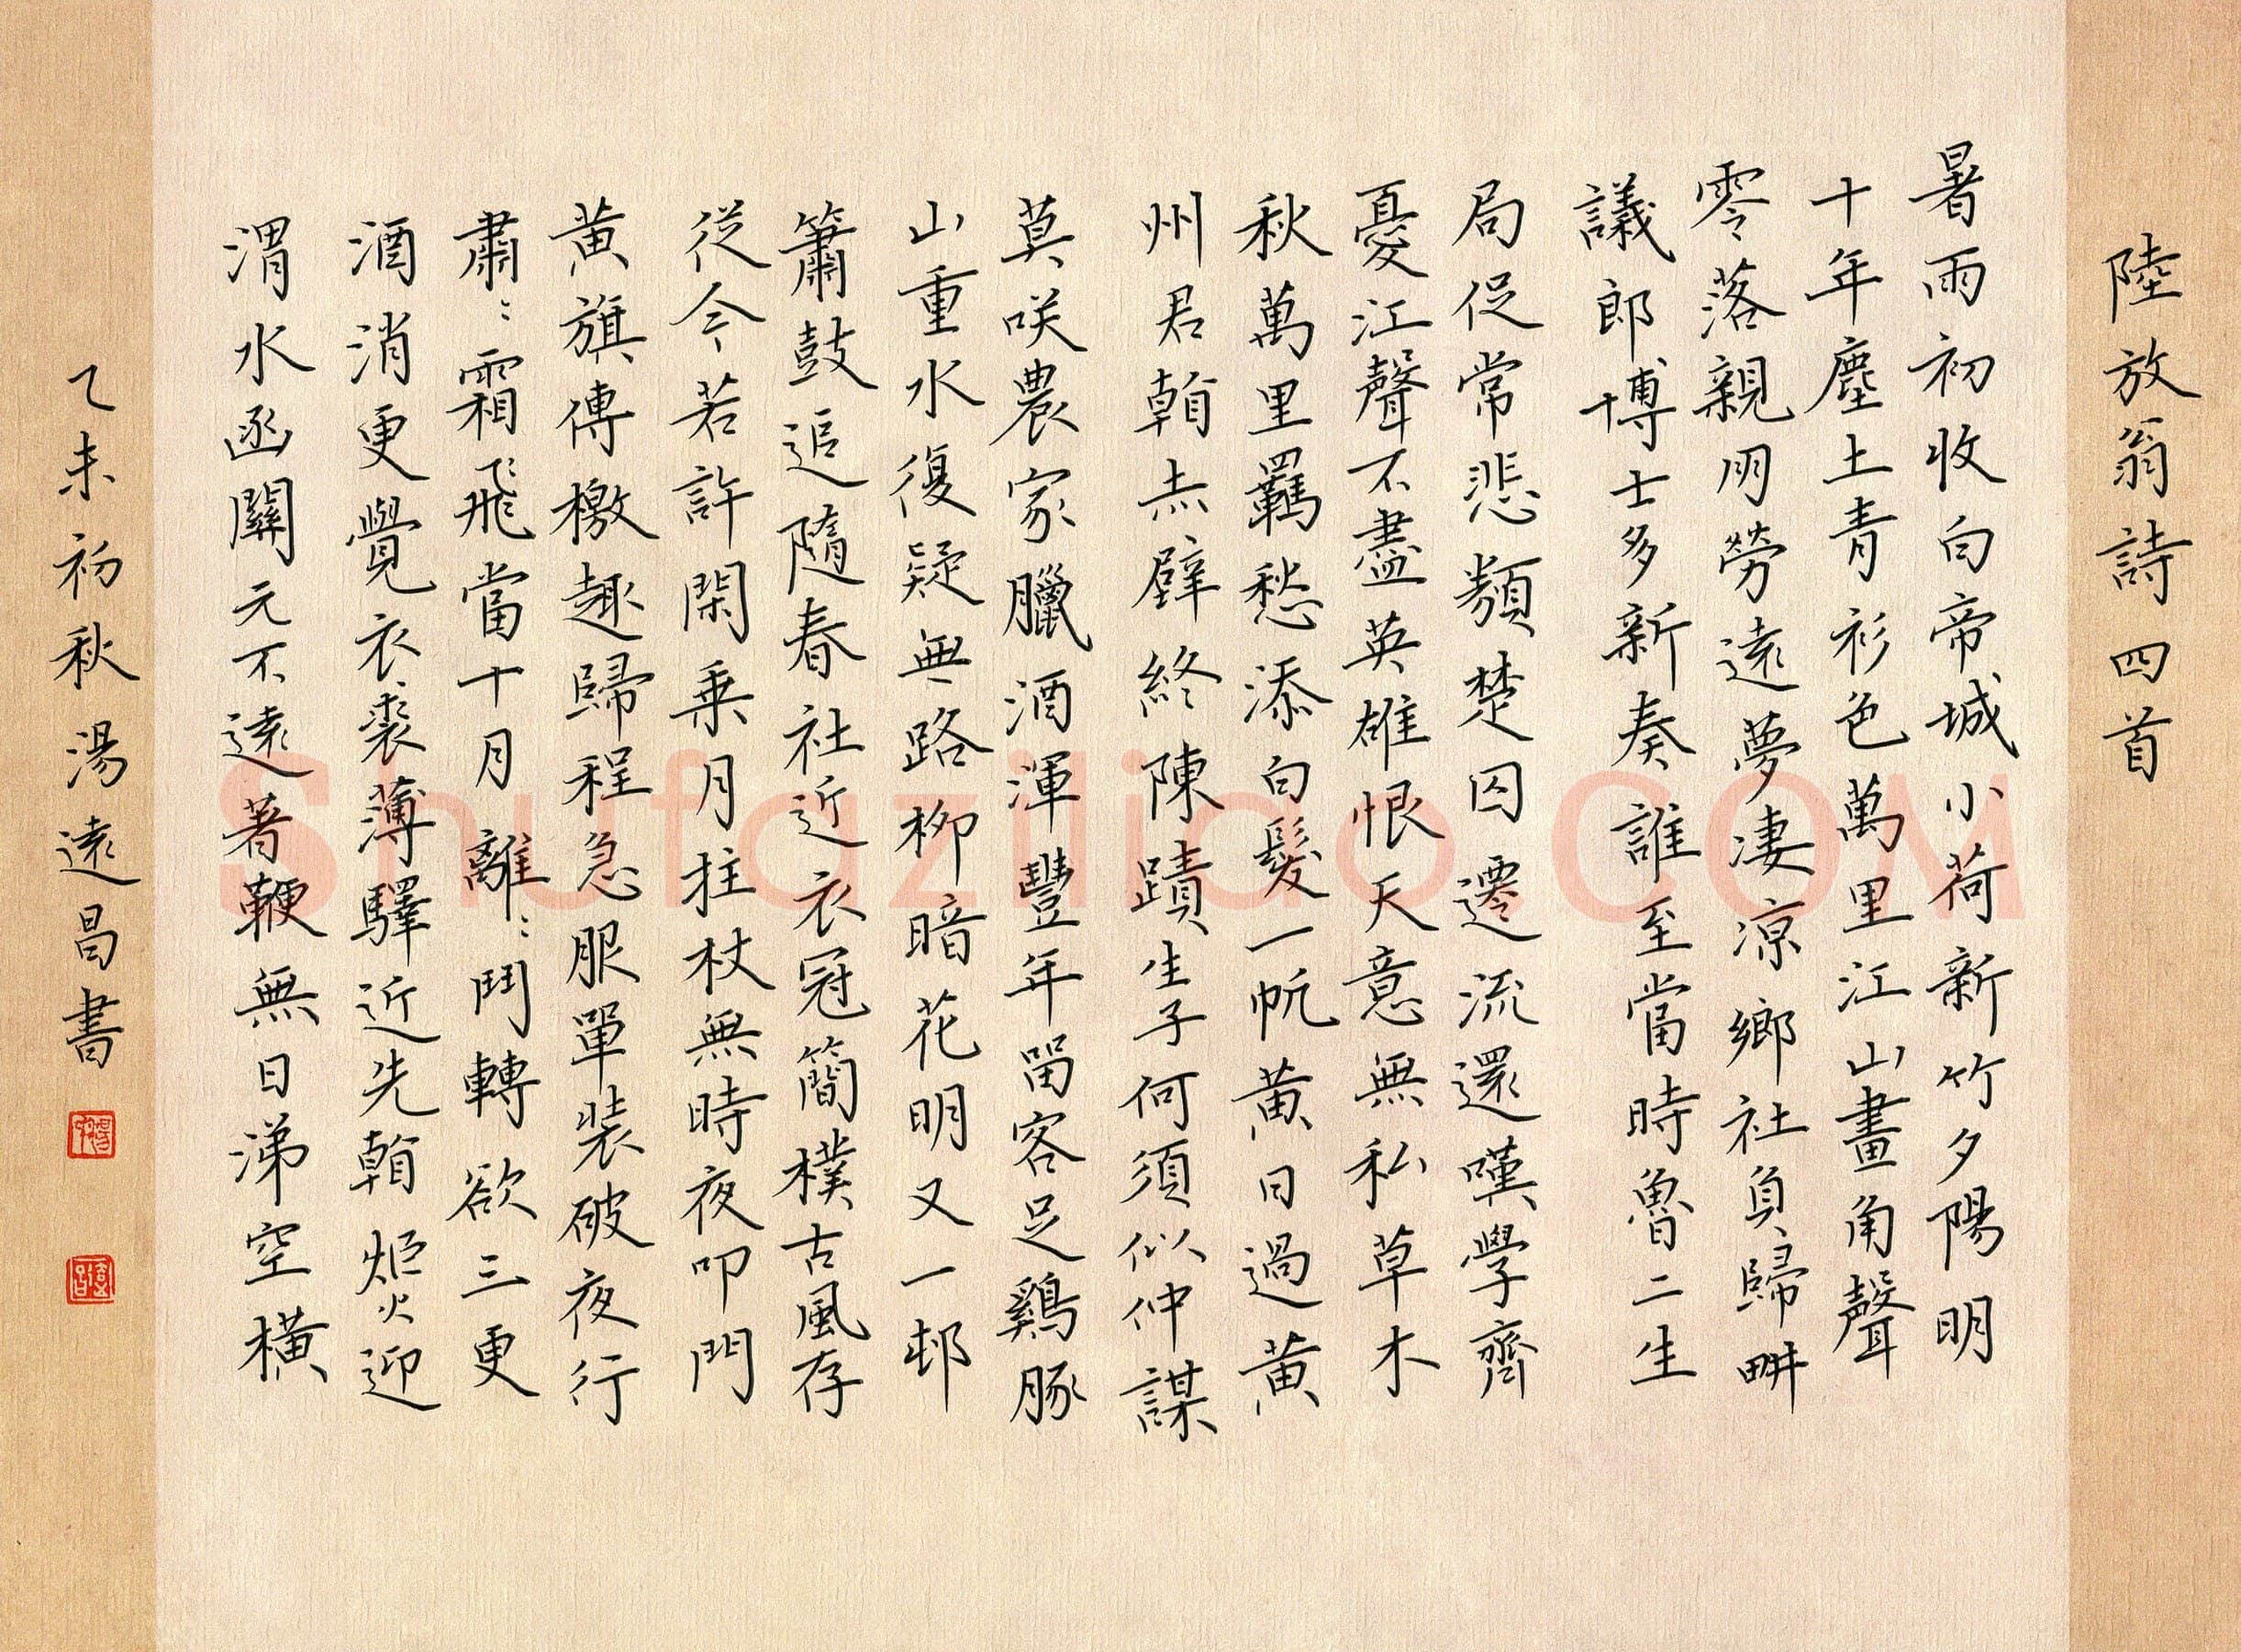 陸放翁詩四首
暑雨初收白帝城小荷新竹夕陽明
十年塵土青衫色萬里江山畫角聲
零落親朋勞遠夢凄涼鄉社負歸畊
議郎博士多新奏誰至當時魯二生
局促常悲類楚囚遷流還嘆學齊
憂江聲不盡英雄恨天意無私草木
秋萬里羈愁添白髮一帆黃日過黃
州君看赤壁終陳蹟生子何須似仲謀
莫咲農家臘酒渾豐年留客足鷄豚
山重水復疑無路柳暗花明又一邨
簫鼓追隨春社近衣冠簡樸古風存
從今若許閑乘月拄杖無時夜叩門
黃旗傳檄趣歸程急服單裝破夜行
肅〻霜飛當十月離〻鬥轉欲三更
酒消更覺衣裘薄驛近先看炬火迎
渭水函關元不遠著鞭無日涕空橫
乙未初秋湯遠昌書
Shufaziliao.COM